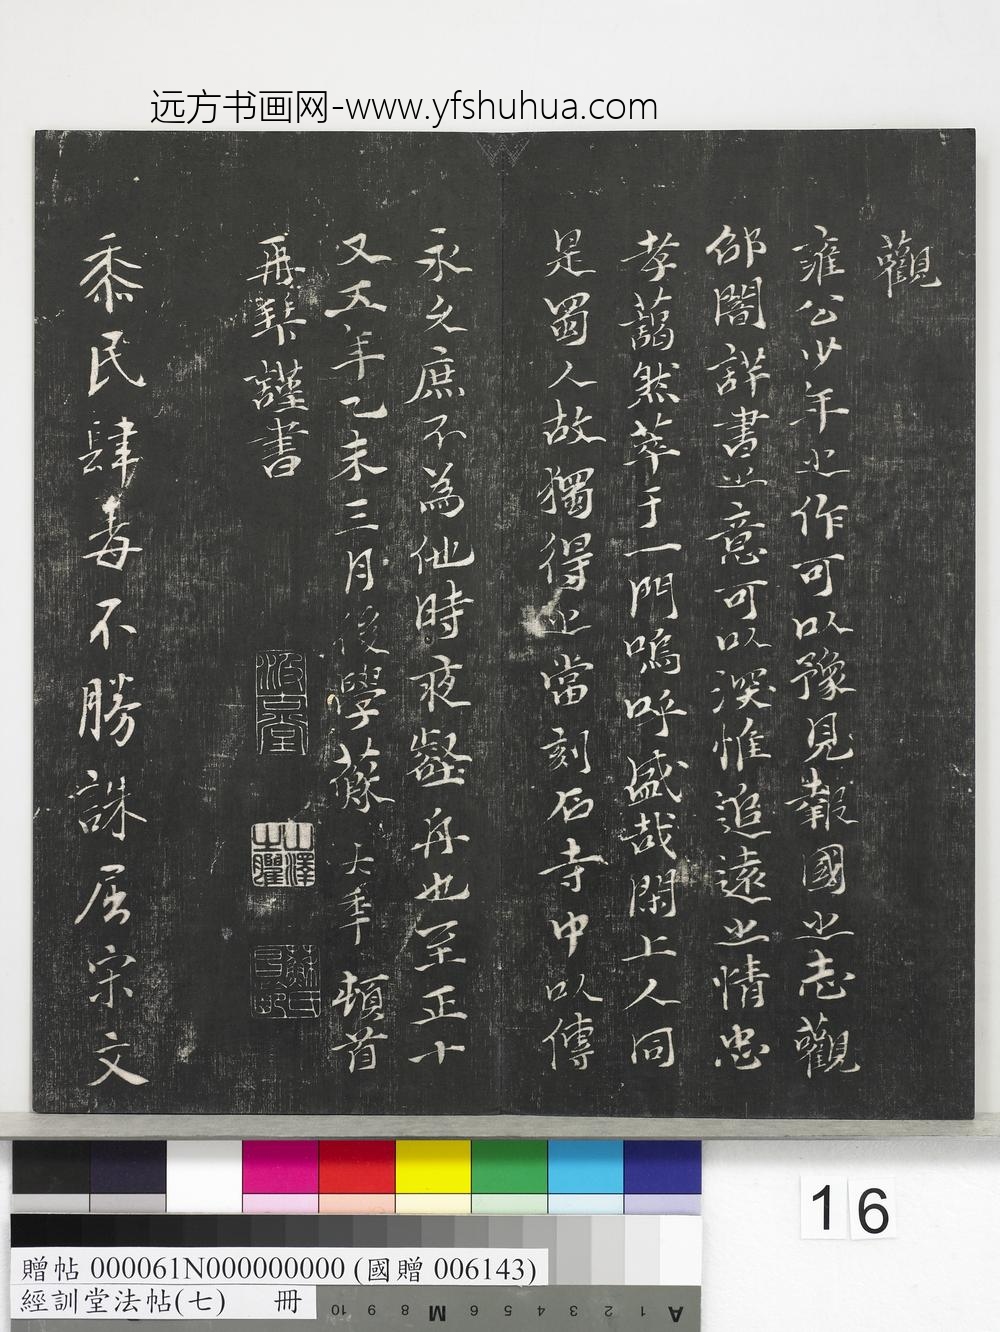 远方书画网-www.yfshuhua.com
觀
雍公少年之作可以豫見報國之志觀
邠閣詳書之意可以深惟追遠之情忠
孝藹然萃于一門嗚呼盛哉閑上人同
是蜀人故獨得之當刻石寺中以傳
永久庶不為他時夜壑舟也至正十
又五年乙未三月後學蘇大年頓首
再拜謹書
黍民肆毒不勝誅屈宋文
16
贈帖 000061N000000000 (國贈 006143)
經訓堂法帖(七) 冊
10 9 8 M 6 5 4 3 2 1 A